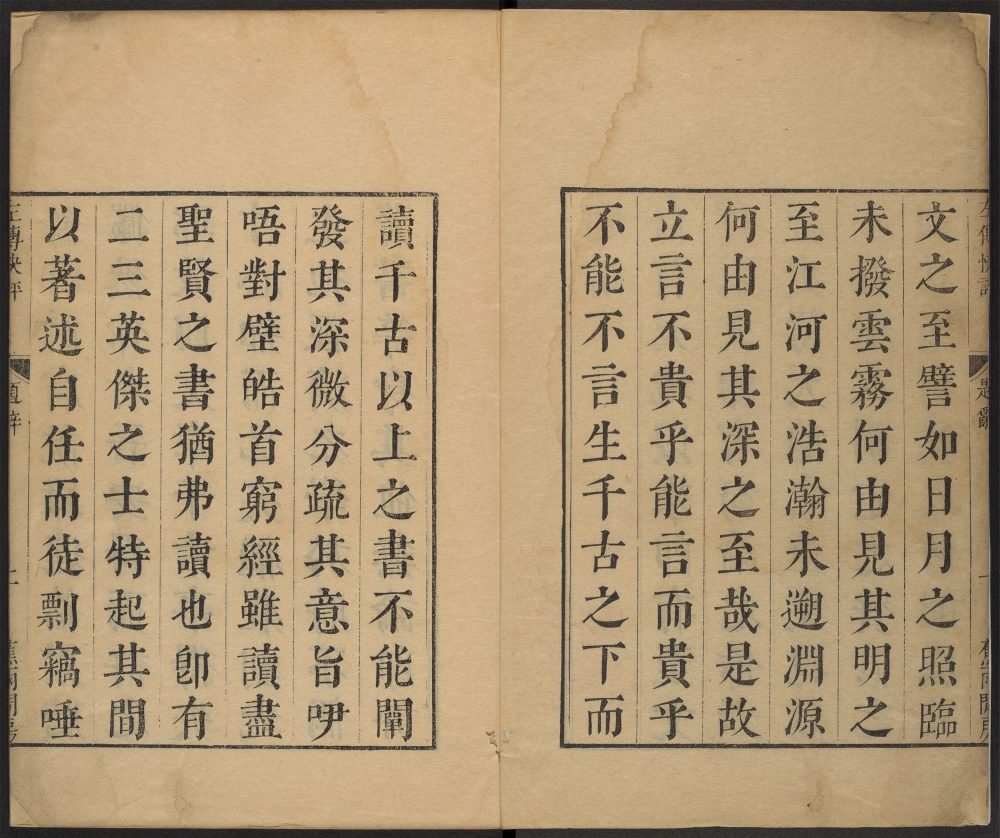 文之至譬如日月之照臨
未撥雲霧何由見其明之
至江河之浩瀚未遡淵源
何由見其深之至哉是故
立言不貴乎能言而貴乎
不能不言生千古之下而
讀千古以上之書不能闡
發其深微分疏其意旨吚
唔對壁皓首窮經雖讀盡
聖賢之書猶弗讀也卽有
二三英傑之士特起其間
以著述自任而徒剽竊唾
左傳快評
題辭